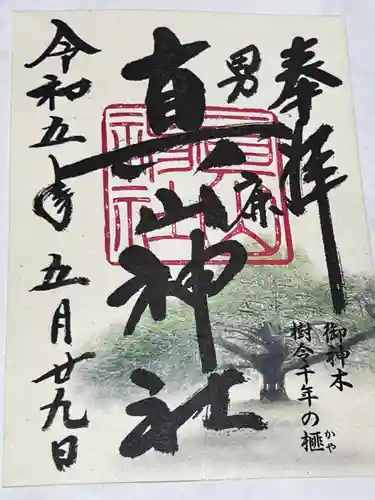 奉拝
男鹿
真山神社
令和五年五月廿九日
御神木
樹令千年の榧
かや